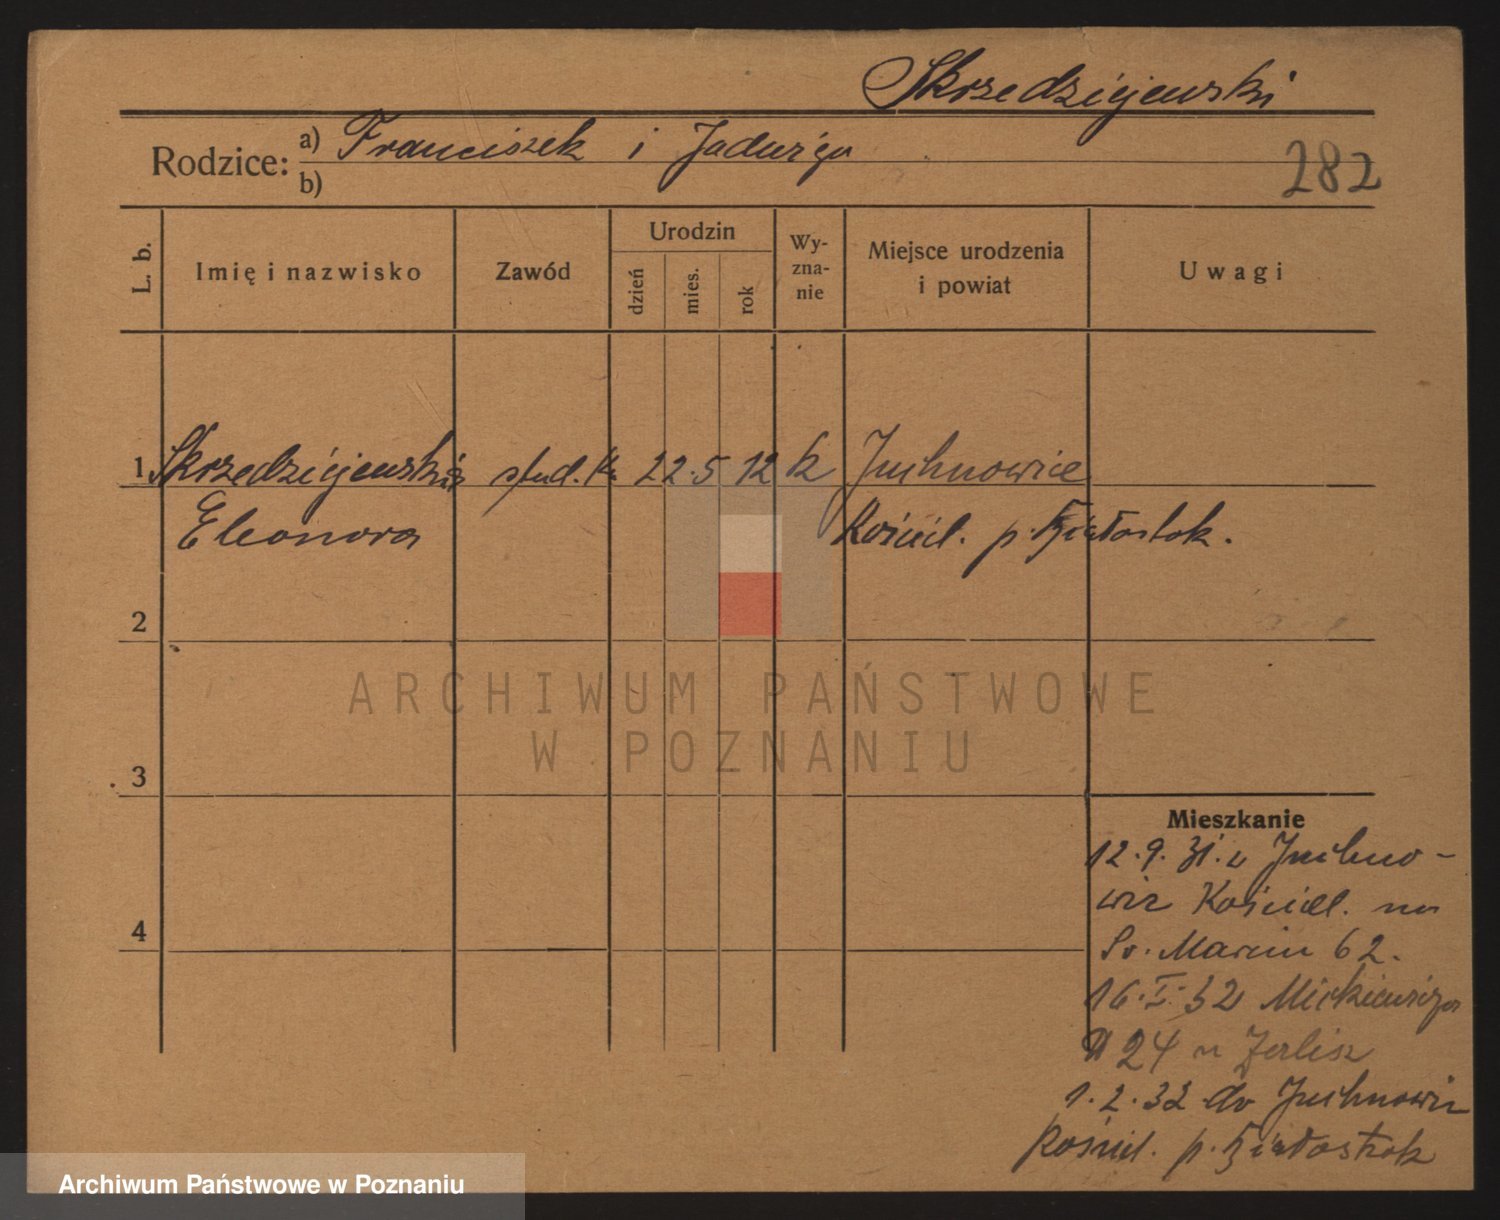 Skrzedziejewski
Rodzice: a) Franciszek i Jadwiga
b)
282
L. b.
Imię i nazwisko
Zawód
Urodzin
dzień
mies.
rok
Wy-
zna-
nie
Miejsce urodzenia
i powiat
Uwagi
1 Skrzedziejewska stud. 22. 5 12 k Juchnowice
Eleonora Kościel. p. Białostok.
2
ARCHIWUM PAŃSTWOWE
W POZNANIU
3
Mieszkanie
12.9.31. z Juchno-
wic Kościel. na
4
Św. Marcin 62.
16.I.32 Mickiewicza
24 u
1.2.32 do Juchnowic
Kościel. p. Białostok
Archiwum Państwowe w Poznaniu